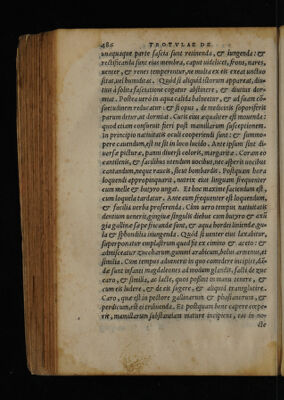 486 TROTULAE DE
unaquaque parte fascia sunt retinenda, & iungenda: &
rectificanda sunt eius membra, caput uidelicet, frons, nares,
uenter, & renes temperentur, ne multa ex eis exeat unctuo
sitas, uel humiditas. Quòd si aliquid istorum appareat, diu-
tius à solita fasciatione cogatur abstinere, & diutius dor-
miat. Postea uerò in aqua calida balneetur, & ad suam cō-
suetudinem reducatur, & si copus, de medicinis soporiferis
parum detur, ut dormiat. Curis eius aqualiter est mouenda:
quod etiam consueuit fieri post mamillarum susceptionem.
In principio natiuitatis oculi cooperiendi sunt: & summo-
pere cauendum, est ne sit in loco lucido. Ante ipsum sint di-
uersæ picturæ, panni diuersi coloris, margaritæ. Coram eo
cantilenis, & facilibus utendum uocibus, nec asperis uocibus
cantandum, neque raucis, sicut bombardis. Postquam hora
loquendi appropinquarit, nutrix eius linguam frequenter
cum melle & butyro ungat. Et hoc maxime faciendum est,
cum loquela tardatur. Ante eum frequenter est loquendum,
& facilia uerba proferenda. Cùm uero tempus natiuitatis
dentium uenerit, gingiuæ singulis diebus cum butyro & axū
gia gallinæ sæpe fricandæ sunt, & aqua hordei linienda, gu-
la & spondilia inungenda. Quòd si uenter eius laxabitur,
superponatur emplastrum quod fit ex cimino & aceto: &
admisceatur zuccharum, gummi arabicum, bolus armenus, et
similia. Cum tempus aduenerit in quo comedere incipiat, dā-
da sunt infanti magdaleones ad modum glandis, facti de zuc
caro, & similia, ac lacte, quos possint in manu tenere, &
cum eis ludere, & de eis sugere, & aliquid transglutire.
Caro, quæ est in pectore gallinarum & phasianorum, &
perdicum, est ei tribuenda. Et postquam bene capere cœpe-
rit, mamillarum substantiam mutare incipiens, eas in no-
cte